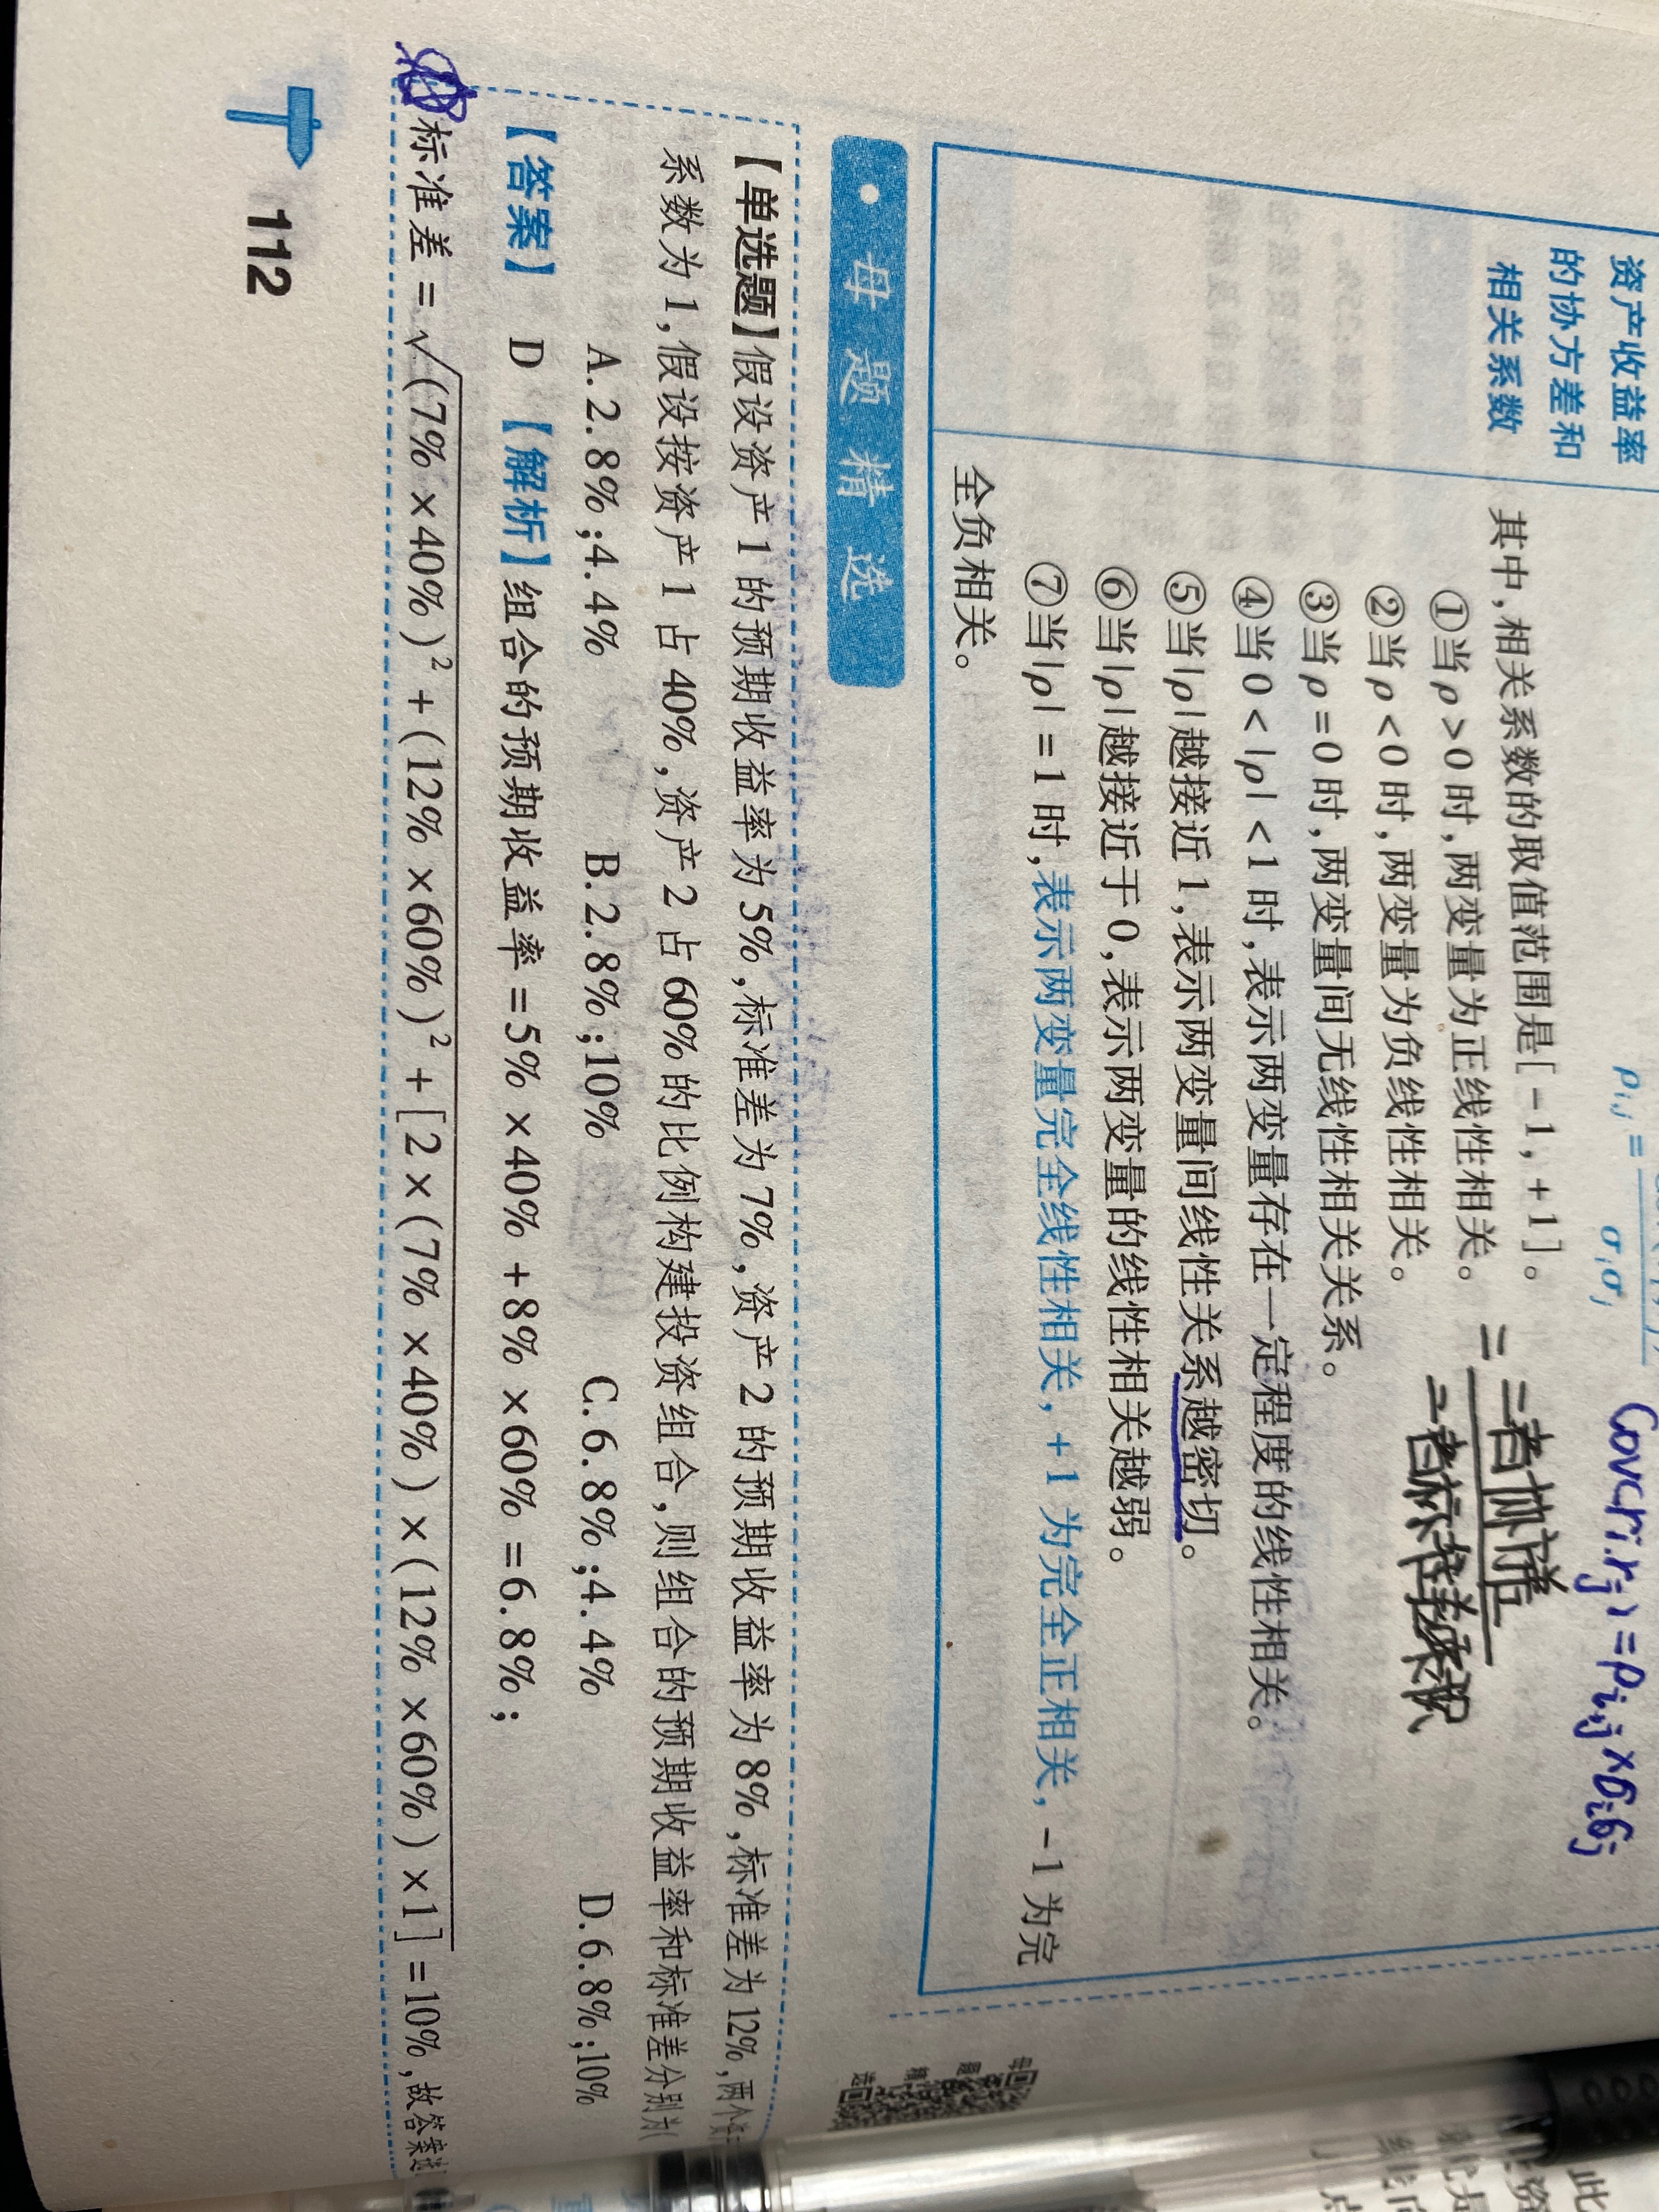 资产收益率
的协方差和
相关系数
ρi,j =
σiσj
Cov(ri,rj)=ρi,j×σiσj
其中,相关系数的取值范围是[-1,+1]。
=二者协方差/二者标准差乘积
①当ρ>0时,两变量为正线性相关。
②当ρ<0时,两变量为负线性相关。
③当ρ=0时,两变量间无线性相关关系。
④当0<|ρ|<1时,表示两变量存在一定程度的线性相关。
⑤当|ρ|越接近1,表示两变量间线性关系越密切。
⑥当|ρ|越接近于0,表示两变量的线性相关越弱。
⑦当|ρ|=1时,表示两变量完全线性相关,+1为完全正相关,-1为完
全负相关。
母题精选
母题精选
【单选题】假设资产1的预期收益率为5%,标准差为7%,资产2的预期收益率为8%,标准差为12%,两个
系数为1,假设按资产1占40%,资产2占60%的比例构建投资组合,则组合的预期收益率和标准差分别为(
A.2.8%;4.4% B.2.8%;10% C.6.8%;4.4% D.6.8%;10%
【答案】 D 【解析】组合的预期收益率=5%×40%+8%×60%=6.8%;
标准差=√(7%×40%)²+(12%×60%)²+[2×(7%×40%)×(12%×60%)×1]=10%,故答案
112